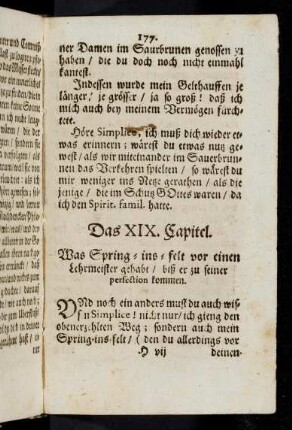 177.
ner Damen im Saurbrunen genossen zu
haben / die du doch noch nicht einmahl
kantest.
Indessen wurde mein Gelthauffen je
länger / je grösser / ja so groß! daß ich
mich auch bey meinem Vermögen fürch-
tete.
Höre Simplice, ich muß dich wieder et-
was erinnern; wärest du etwas nutz ge-
west / als wir miteinander im Sauerbrun-
nen das Verkehren spielten / so wärest du
mir weniger ins Netze gerathen / als die
jenige / die im Schutz GOttes waren / da
ich den Spirit. famil. hatte.
Das XIX. Capitel.
Was Spring-ins-felt vor einen
Lehrmeister gehabt / biß er zu seiner
perfection kommen.
UNd noch ein anders must du auch wis-
sen Simplice! nicht nur / ich gieng den
obenerzehlten Weg; sondern auch mein
Spring-ins-felt / (den du allerdings vor
H vij deinen-